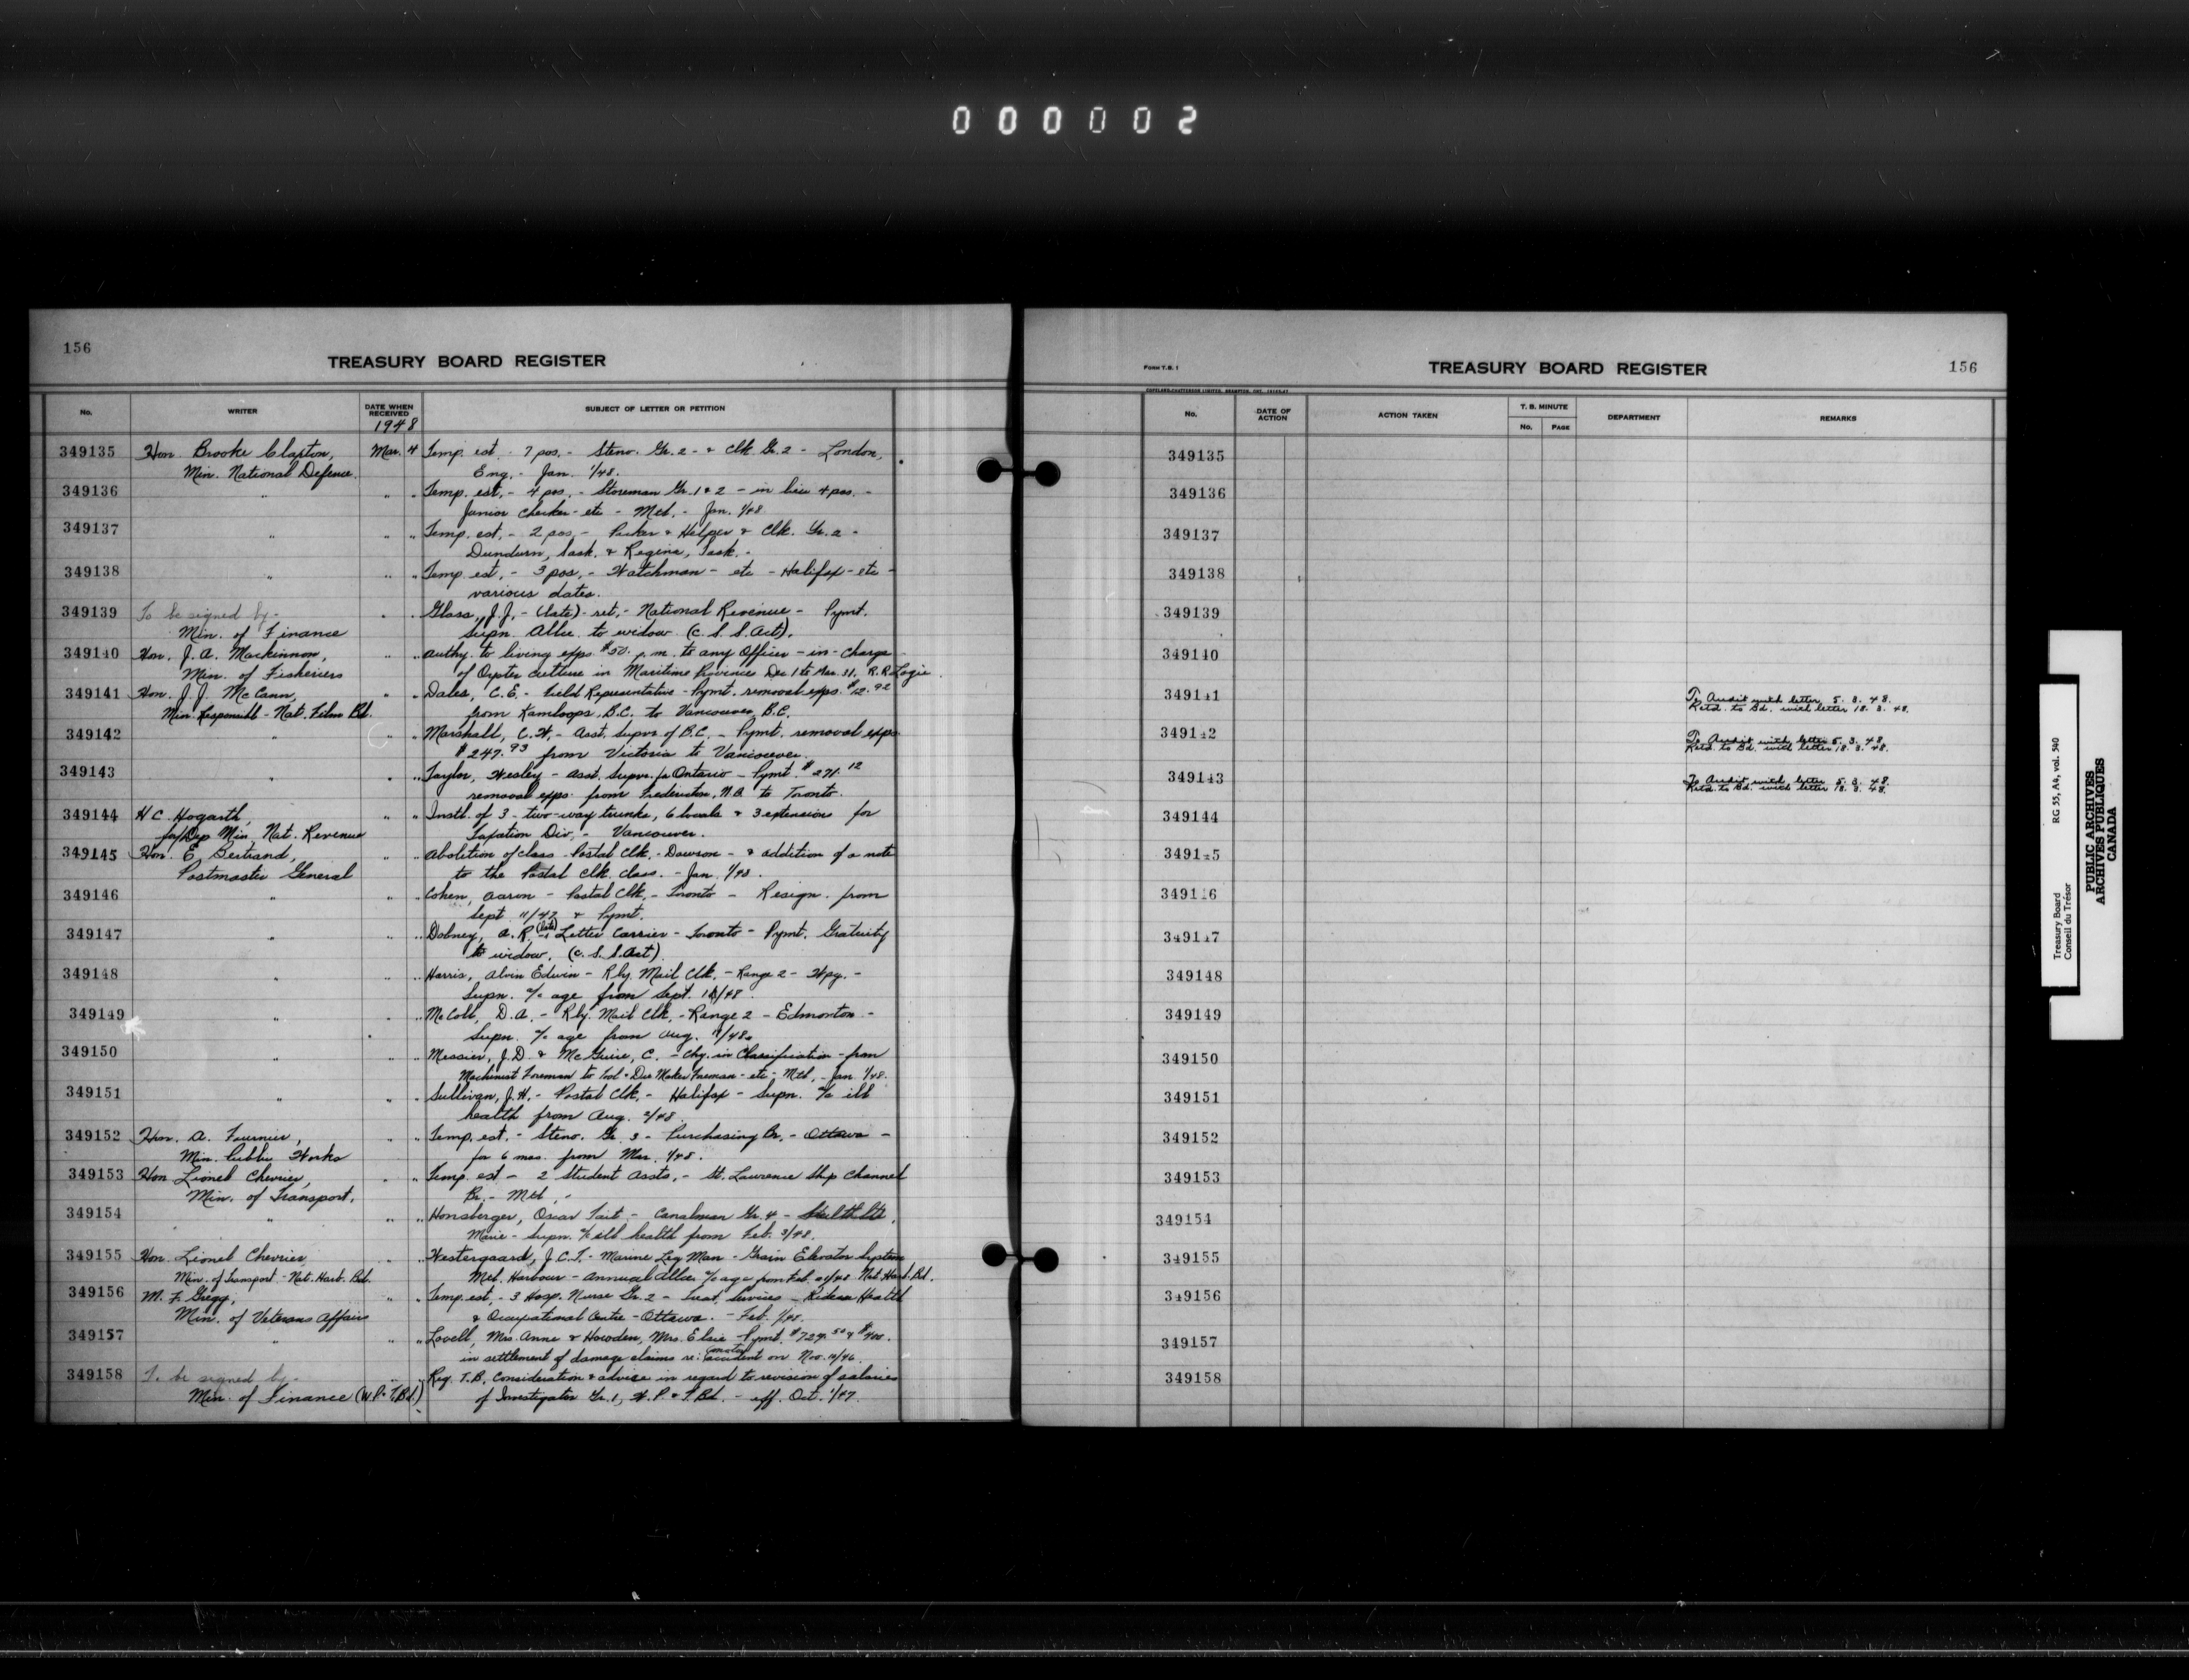 000002
156
TREASURY BOARD REGISTER
No. WRITER DATE WHEN RECEIVED SUBJECT OF LETTER OR PETITION
1948
349135 Hon. Brooke Claxton, Mar. 4 Temp. est. - 7 pos. - Steno. Gr. 2 - & Clk Gr. 2 - London,
Min. National Defence. Eng. - Jan. 1/48.
349136 " " " Temp. est. - 4 pos. - Storeman Gr. 1 & 2 - in lieu 4 pos. -
Junior Checker - etc - Mtl. - Jan. 1/48
349137 " " " Temp. est. - 2 pos. - Packer & Helper & Clk. Gr. 2 -
Dundurn, Sask. & Regina, Sask. -
349138 " " " Temp est. - 3 pos. - Watchman - etc - Halifax - etc -
various dates.
349139 To be signed by - " " Glass, J.J. - (late) - ret. - National Revenue - Pymt.
Min. of Finance Supn. Allce. to widow (C.S.S. Act).
349140 Hon. J. A. Mackinnon, " " Authy. to living exps. $50. p.m. to any Officer - in - charge
Min. of Fisheries of Oyster Culture in Maritime Provinces Dec 1 to Mar. 31. R.R. Logie.
349141 Hon. J. J. McCann, " " Dales, C. E. - Field Representative - Pymt. removal exps. $12.92
Min. Responsible - Nat. Film Bd. from Kamloops, B.C. to Vancouver, B.C.
349142 " " " Marshall, C.W. - Asst. Supvr. of B.C. - Pymt. removal exps
$247.93 from Victoria to Vancouver.
349143 " " " Taylor, Wesley - Asst. Supvr. for Ontario - Pymt. $271.12
removal exps. from Fredericton, N.B. to Toronto.
349144 H C Hogarth, " " Instl. of 3 - two-way trunks, 6 locals & 3 extensions for
for/Dep Min Nat. Revenue Taxation Div. - Vancouver.
349145 Hon. E. Bertrand, " " Abolition of class - Postal Clk. - Dawson - & addition of a note
Postmaster General to the Postal Clk. class. - Jan. 1/48.
349146 " " " Cohen, Aaron - Postal Clk. - Toronto - Resign. from
Sept. 11/47 & Pymt.
349147 " " " Dobney, A. R. - (late) Letter Carrier - Toronto - Pymt. Gratuity
to widow. (C.S.S. Act)
349148 " " " Harris, Alvin Edwin - Rly. Mail Clk. - Range 2 - Wpg. -
Supn. a/c age from Sept. /48.
349149 " " " McColl, D.A. - Rly. Mail Clk. - Range 2 - Edmonton -
Supn. a/c age from Aug. /48.
349150 " " " Messier, J.D. & McGuire, C. - Chg. in Classification - from
Machinist Foreman to Tool & Die Maker Foreman - etc - Mtl. - Jan. 1/48.
349151 " " " Sullivan, J.H. - Postal Clk. - Halifax - Supn. a/c ill
health from Aug. 2/48.
349152 Hon. A. Fournier, " " Temp. est. - Steno. Gr. 3 - Purchasing Br. - Ottawa -
Min. Public Works for 6 mos. from Mar. 1/48.
349153 Hon Lionel Chevrier, " " Temp. est - 2 Student Assts. - St. Lawrence Ship Channel
Min. of Transport. Br. - Mtl. -
349154 " " " Honsberger, Oscar Tait - Canalman Gr. 4 - Sault Ste.
Marie - Supn. a/c ill health from Feb. 3/48.
349155 Hon. Lionel Chevrier, " " Westergaard, J.C.T. - Marine Leg Man - Grain Elevator System
Min. of Transport - Nat. Harb. Bd. Mtl. Harbour - Annual Allce. a/c age from Feb. 21/48 Nat. Harb. Bd.
349156 M. F. Gregg, " " Temp. est. - 3 Hosp. Nurse Gr. 2 - Treat. Services - Rideau Health
Min. of Veterans Affairs & Occupational Centre - Ottawa. - Feb. 1/48.
349157 " " " Lovell, Mrs. Anne & Howden, Mrs. Elsie - Pymt. $724.50 & $400.
in settlement of damage claims re: (motor) accident on Nov. 10/46.
349158 To be signed by - " " Req. T.B. Consideration & advice in regard to revision of salaries
Min. of Finance (W.P. & T.Bd.) of Investigator Gr. 1, W.P. & T. Bd. - eff. Oct. 1/47.
FORM T.B. 1
TREASURY BOARD REGISTER
156
No. DATE OF ACTION ACTION TAKEN T. B. MINUTE DEPARTMENT REMARKS
No. PAGE
349135
349136
349137
349138
349139
349140
349141 To Audit with letter 5. 3. 48.
Retd. to Bd. with letter 18. 3. 48.
349142 To Audit with letter 5. 3. 48.
Retd. to Bd. with letter 18. 3. 48.
349143 To Audit with letter 5. 3. 48.
Retd. to Bd. with letter 18. 3. 48.
349144
349145
349146
349147
349148
349149
349150
349151
349152
349153
349154
349155
349156
349157
349158
Treasury Board RG 55, A4, vol. 540
Conseil du Trésor
PUBLIC ARCHIVES
ARCHIVES PUBLIQUES
CANADA